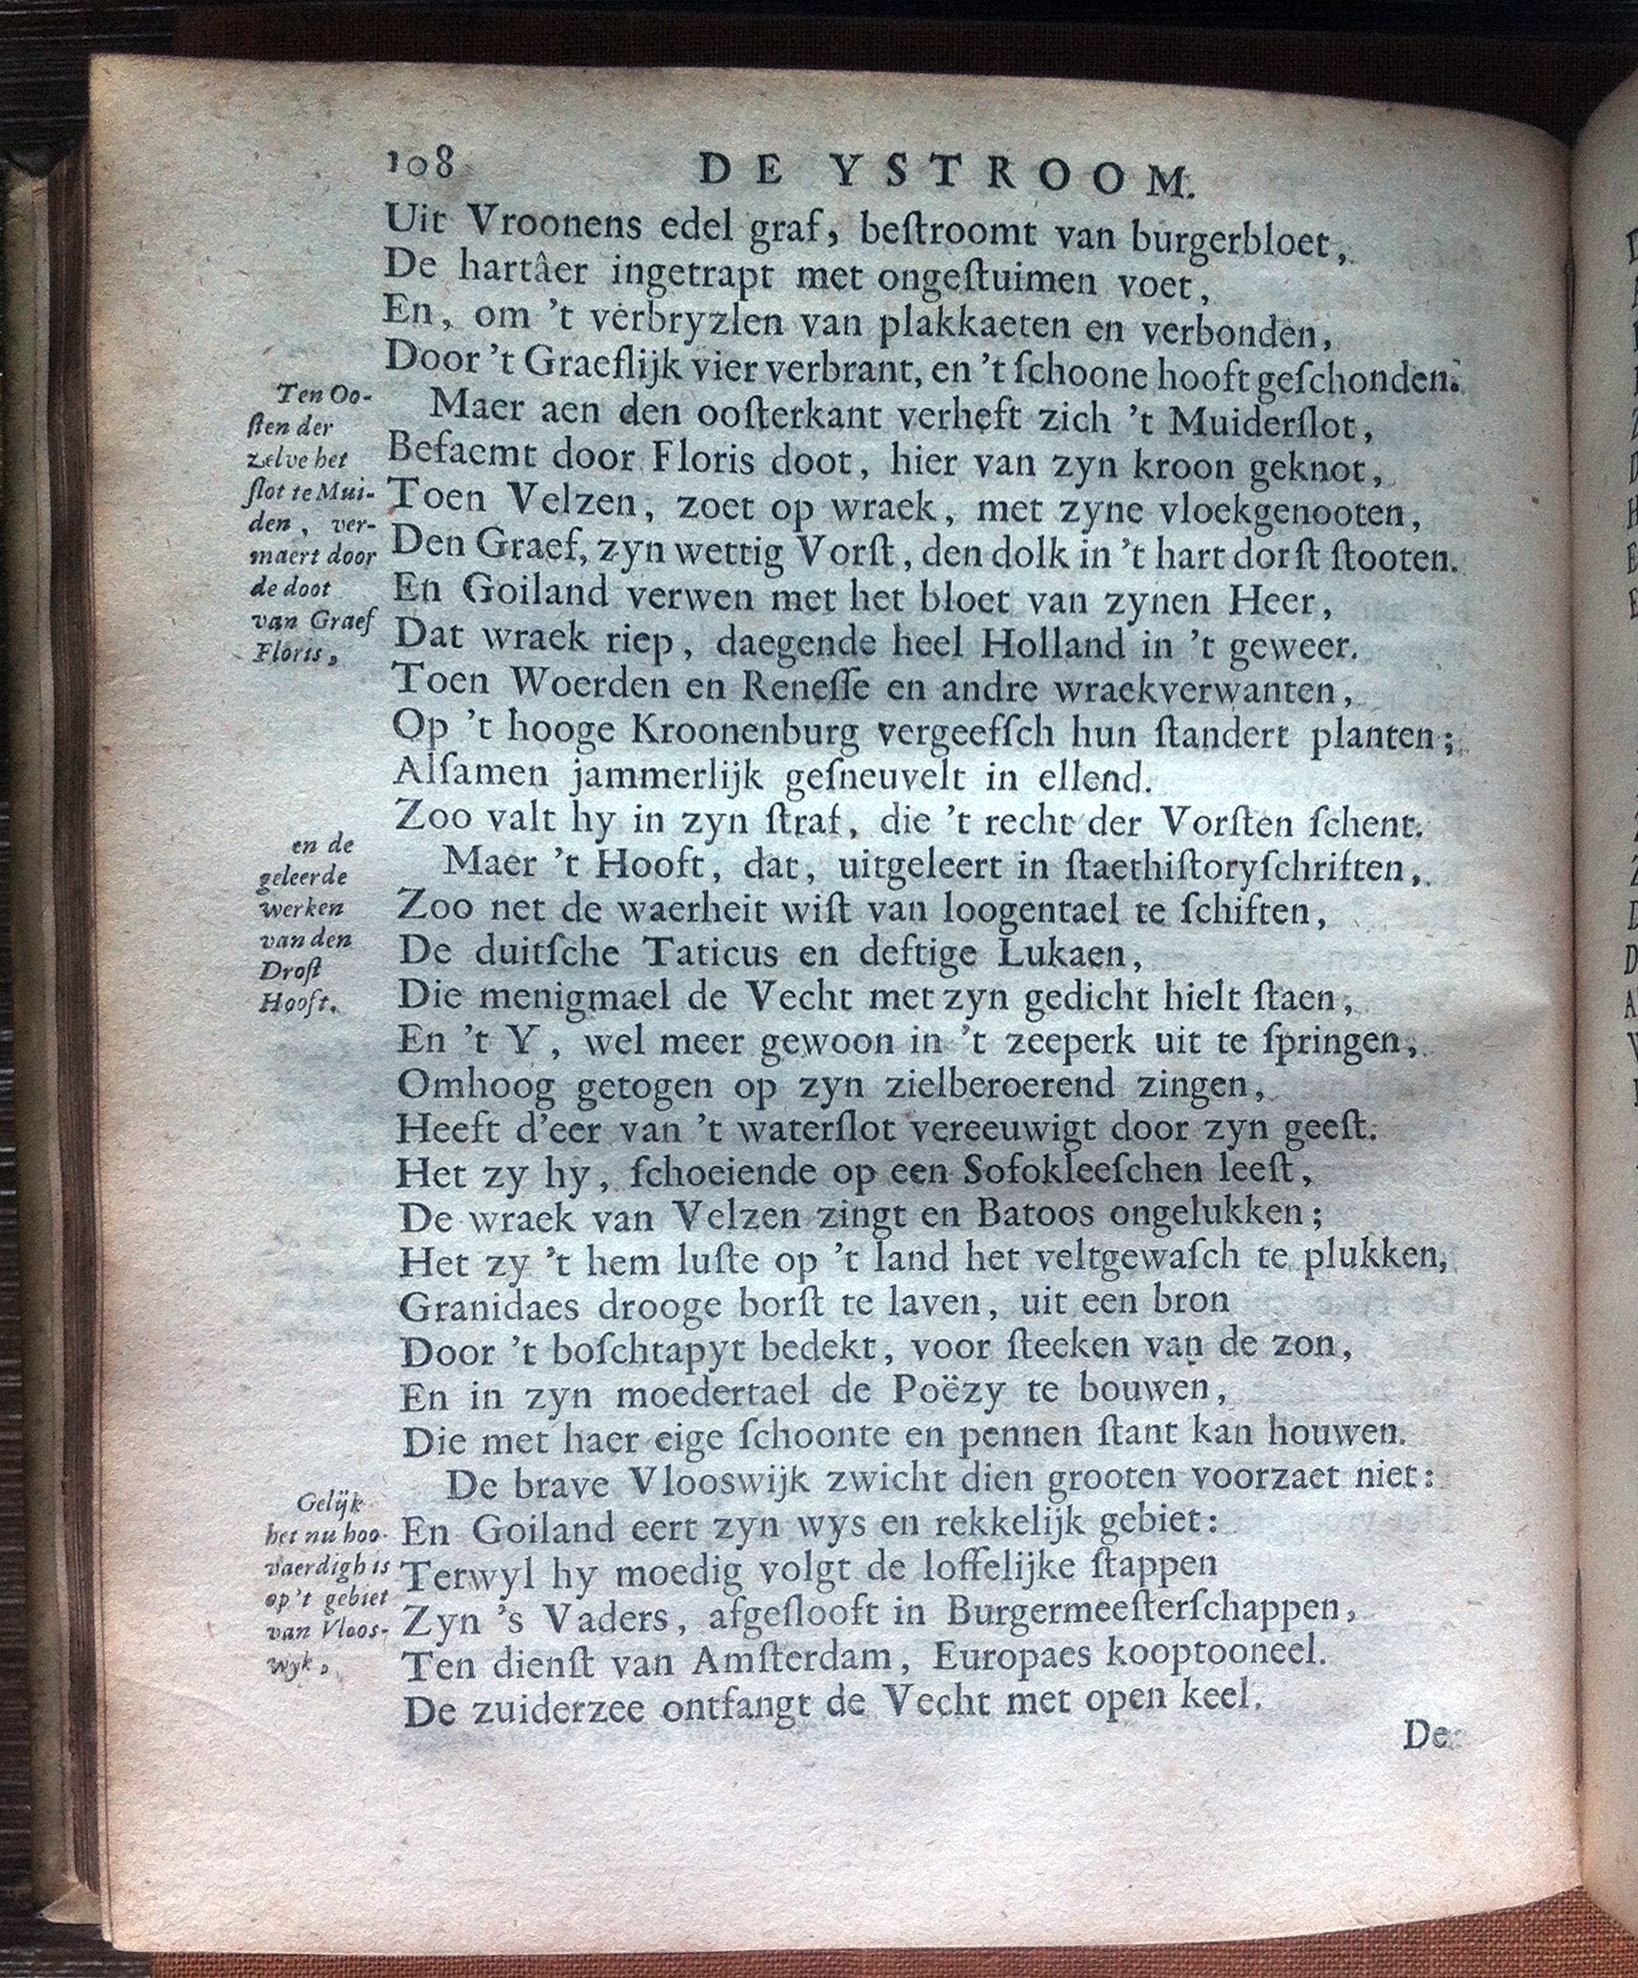 108 DE YSTROOM.
Uit Vroonens edel graf, beſtroomt van burgerbloet,
De hartâer ingetrapt met ongeſtuimen voet,
En, om 't verbryzlen van plakkaeten en verbonden,
Door 't Graeflijk vier verbrant, en 't ſchoone hooft geſchonden.
Maer aen den ooſterkant verheft zich 't Muiderſlot,
Befaemt door Floris doot, hier van zyn kroon geknot,
Toen Velzen, zoet op wraek, met zyne vloekgenooten,
Den Graef, zyn wettig Vorſt, den dolk in 't hart dorſt ſtooten.
En Goiland verwen met het bloet van zynen Heer,
Dat wraek riep, daegende heel Holland in 't geweer.
Toen Woerden en Reneſſe en andre wraekverwanten,
Op 't hooge Kroonenburg vergeefſch hun ſtandert planten;
Alſamen jammerlijk geſneuvelt in ellend.
Zoo valt hy in zyn ſtraf, die 't recht der Vorſten ſchent.
Maer 't Hooft, dat, uitgeleert in ſtaethiſtoryſchriften,
Zoo net de waerheit wiſt van loogentael te ſchiften,
De duitſche Taticus en deftige Lukaen,
Die menigmael de Vecht met zyn gedicht hielt ſtaen,
En 't Y, wel meer gewoon in 't zeeperk uit te ſpringen,
Omhoog getogen op zyn zielberoerend zingen,
Heeft d'eer van 't waterſlot vereeuwigt door zyn geeſt.
Het zy hy, ſchoeiende op een Sofokleeſchen leeſt,
De wraek van Velzen zingt en Batoos ongelukken;
Het zy 't hem luſte op 't land het veltgewaſch te plukken,
Granidaes drooge borſt te laven, uit een bron
Door 't boſchtapyt bedekt, voor ſteeken van de zon,
En in zyn moedertael de Poëzy te bouwen,
Die met haer eige ſchoonte en pennen ſtant kan houwen.
De brave Vlooswijk zwicht dien grooten voorzaet niet:
En Goiland eert zyn wys en rekkelijk gebiet:
Terwyl hy moedig volgt de loffelijke ſtappen
Zyn 's Vaders, afgeſlooft in Burgermeeſterſchappen,
Ten dienſt van Amſterdam, Europaes kooptooneel.
De zuiderzee ontfangt de Vecht met open keel.
De
Ten Oo-
ſten der
zelve het
ſlot te Mui-
den, ver-
maert door
de doot
van Graef
Floris,
en de
geleerde
werken
van den
Droſt
Hooft.
Gelijk
het nu hoo-
vaerdigh is
op 't gebiet
van Vloos-
wyk,